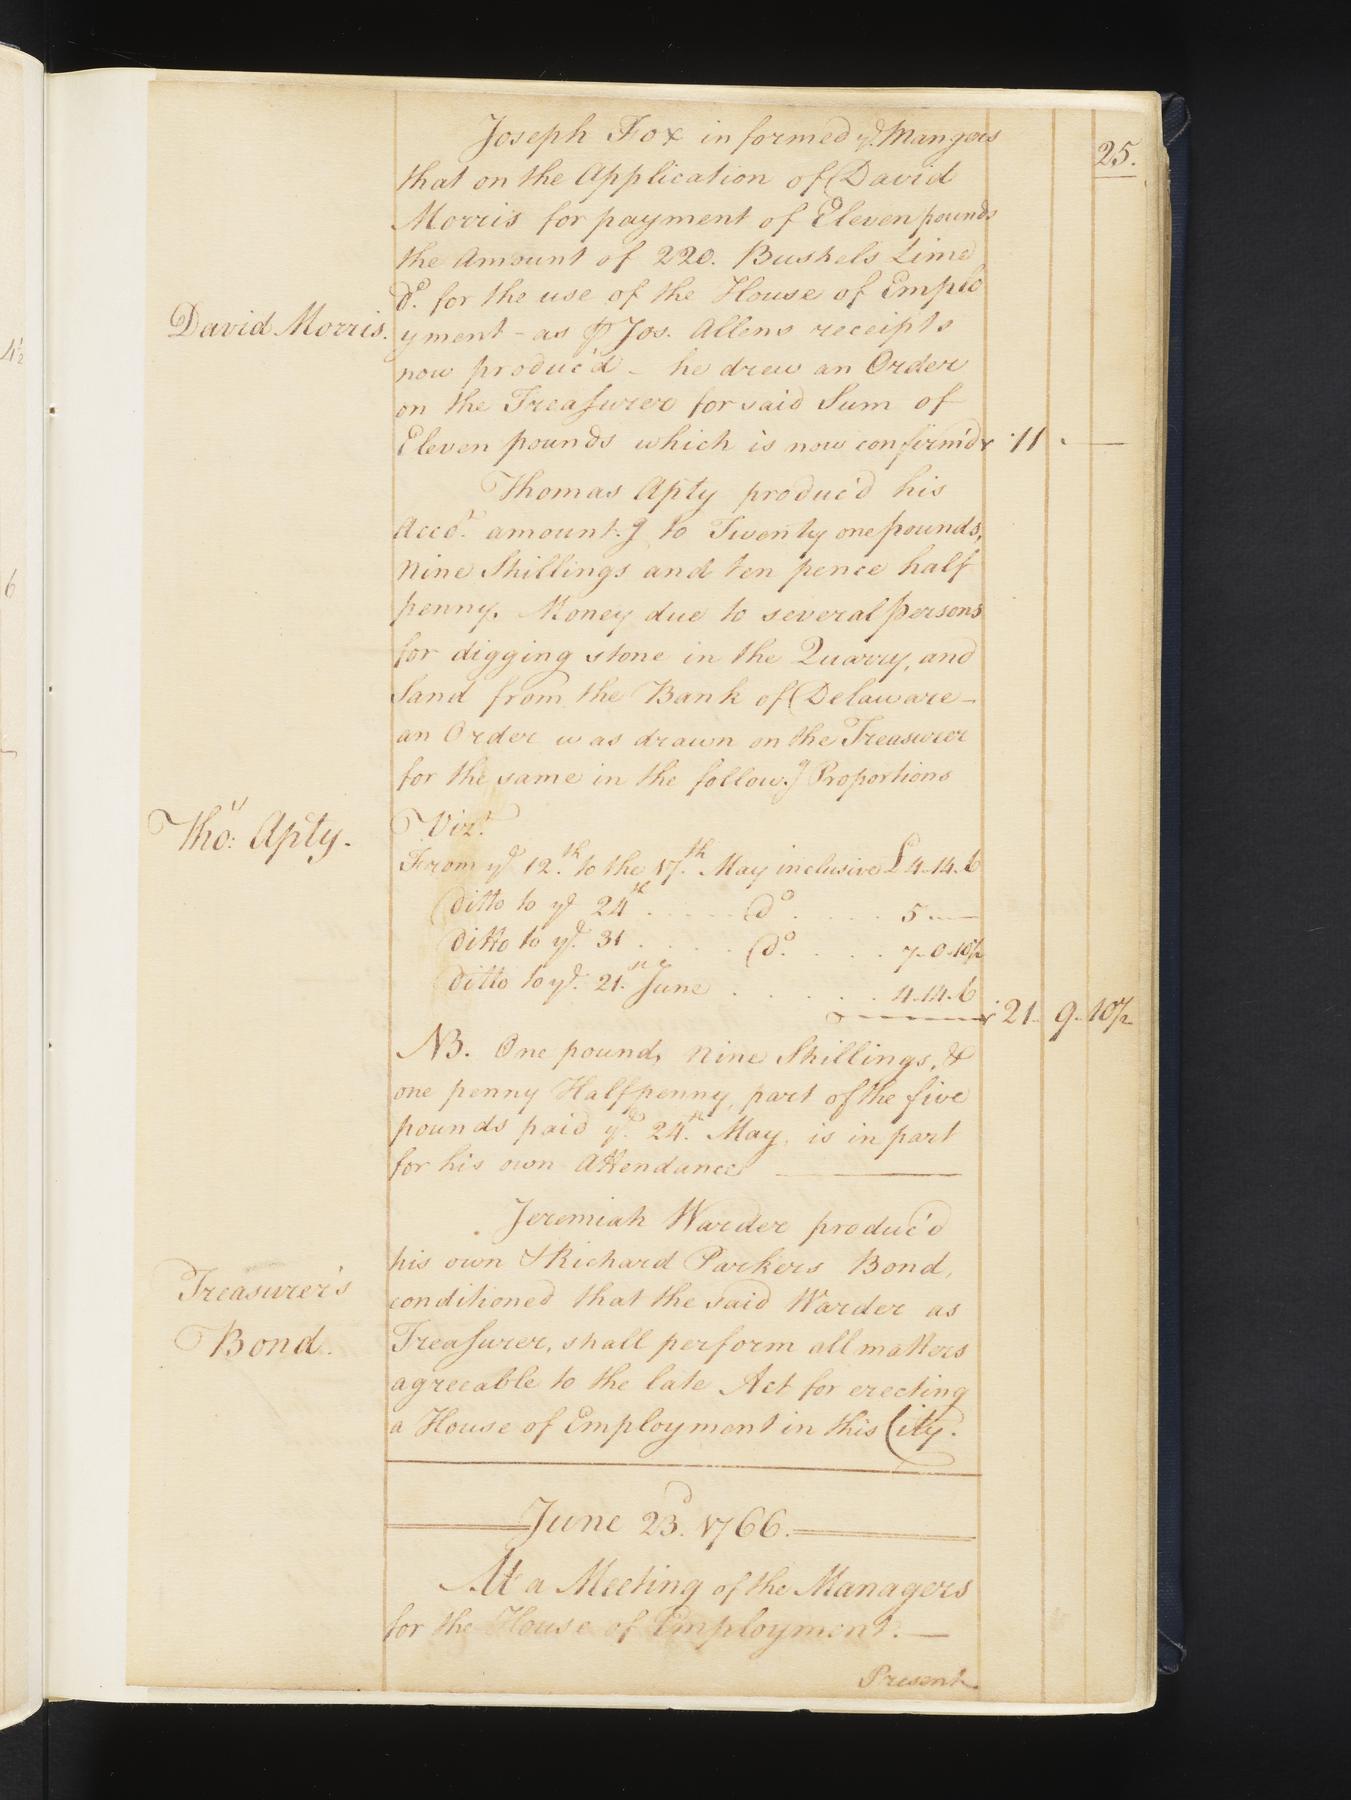 25.
Joseph Fox informed ye. Mangers
that on the Application of David
Morris for payment of Eleven pounds
the Amount of 220. Bushels Lime
do. for the use of the House of Emplo
David Morris.
yment - as ⅌ Jos. Allens receipts
now produc'd - he drew an Order
on the Treasurer for said Sum of
Eleven pounds which is now confirm'd 11 . —
Thomas Apty produc'd his
Acco.t amount.g to Twenty one pounds,
Nine Shillings and ten pence half
penny. Money due to several persons
for digging stone in the Quarry, and
Sand from the Bank of Delaware -
an Order was drawn on the Treasurer
for the same in the follow.g Proportions
Tho:s Apty.
Viz.t
From ye 12.th to the 17.th May inclusive £ 4-14-6
Ditto to ye 24th . . . . . do . . . . . 5 . —
Ditto to ye. 31 . . . . . do. . . . . 7-0-10½
Ditto to ye. 21.st June . . . . . . 4-14-6
21- 9- 10½
NB. One pound, Nine Shillings, &
one penny Halfpenny, part of the five
pounds paid ye. 24.th May, is in part
for his own Attendance —
Jeremiah Warder produc'd
his own & Richard Parkers Bond,
Treasurer's
conditioned that the said Warder as
Bond.
Treasurer, shall perform all matters
agreeable to the late Act for erecting
a House of Employment in this City.
June 23.d 1766.
At a Meeting of the Managers
for the House of Employment. —
Present.
4½
6